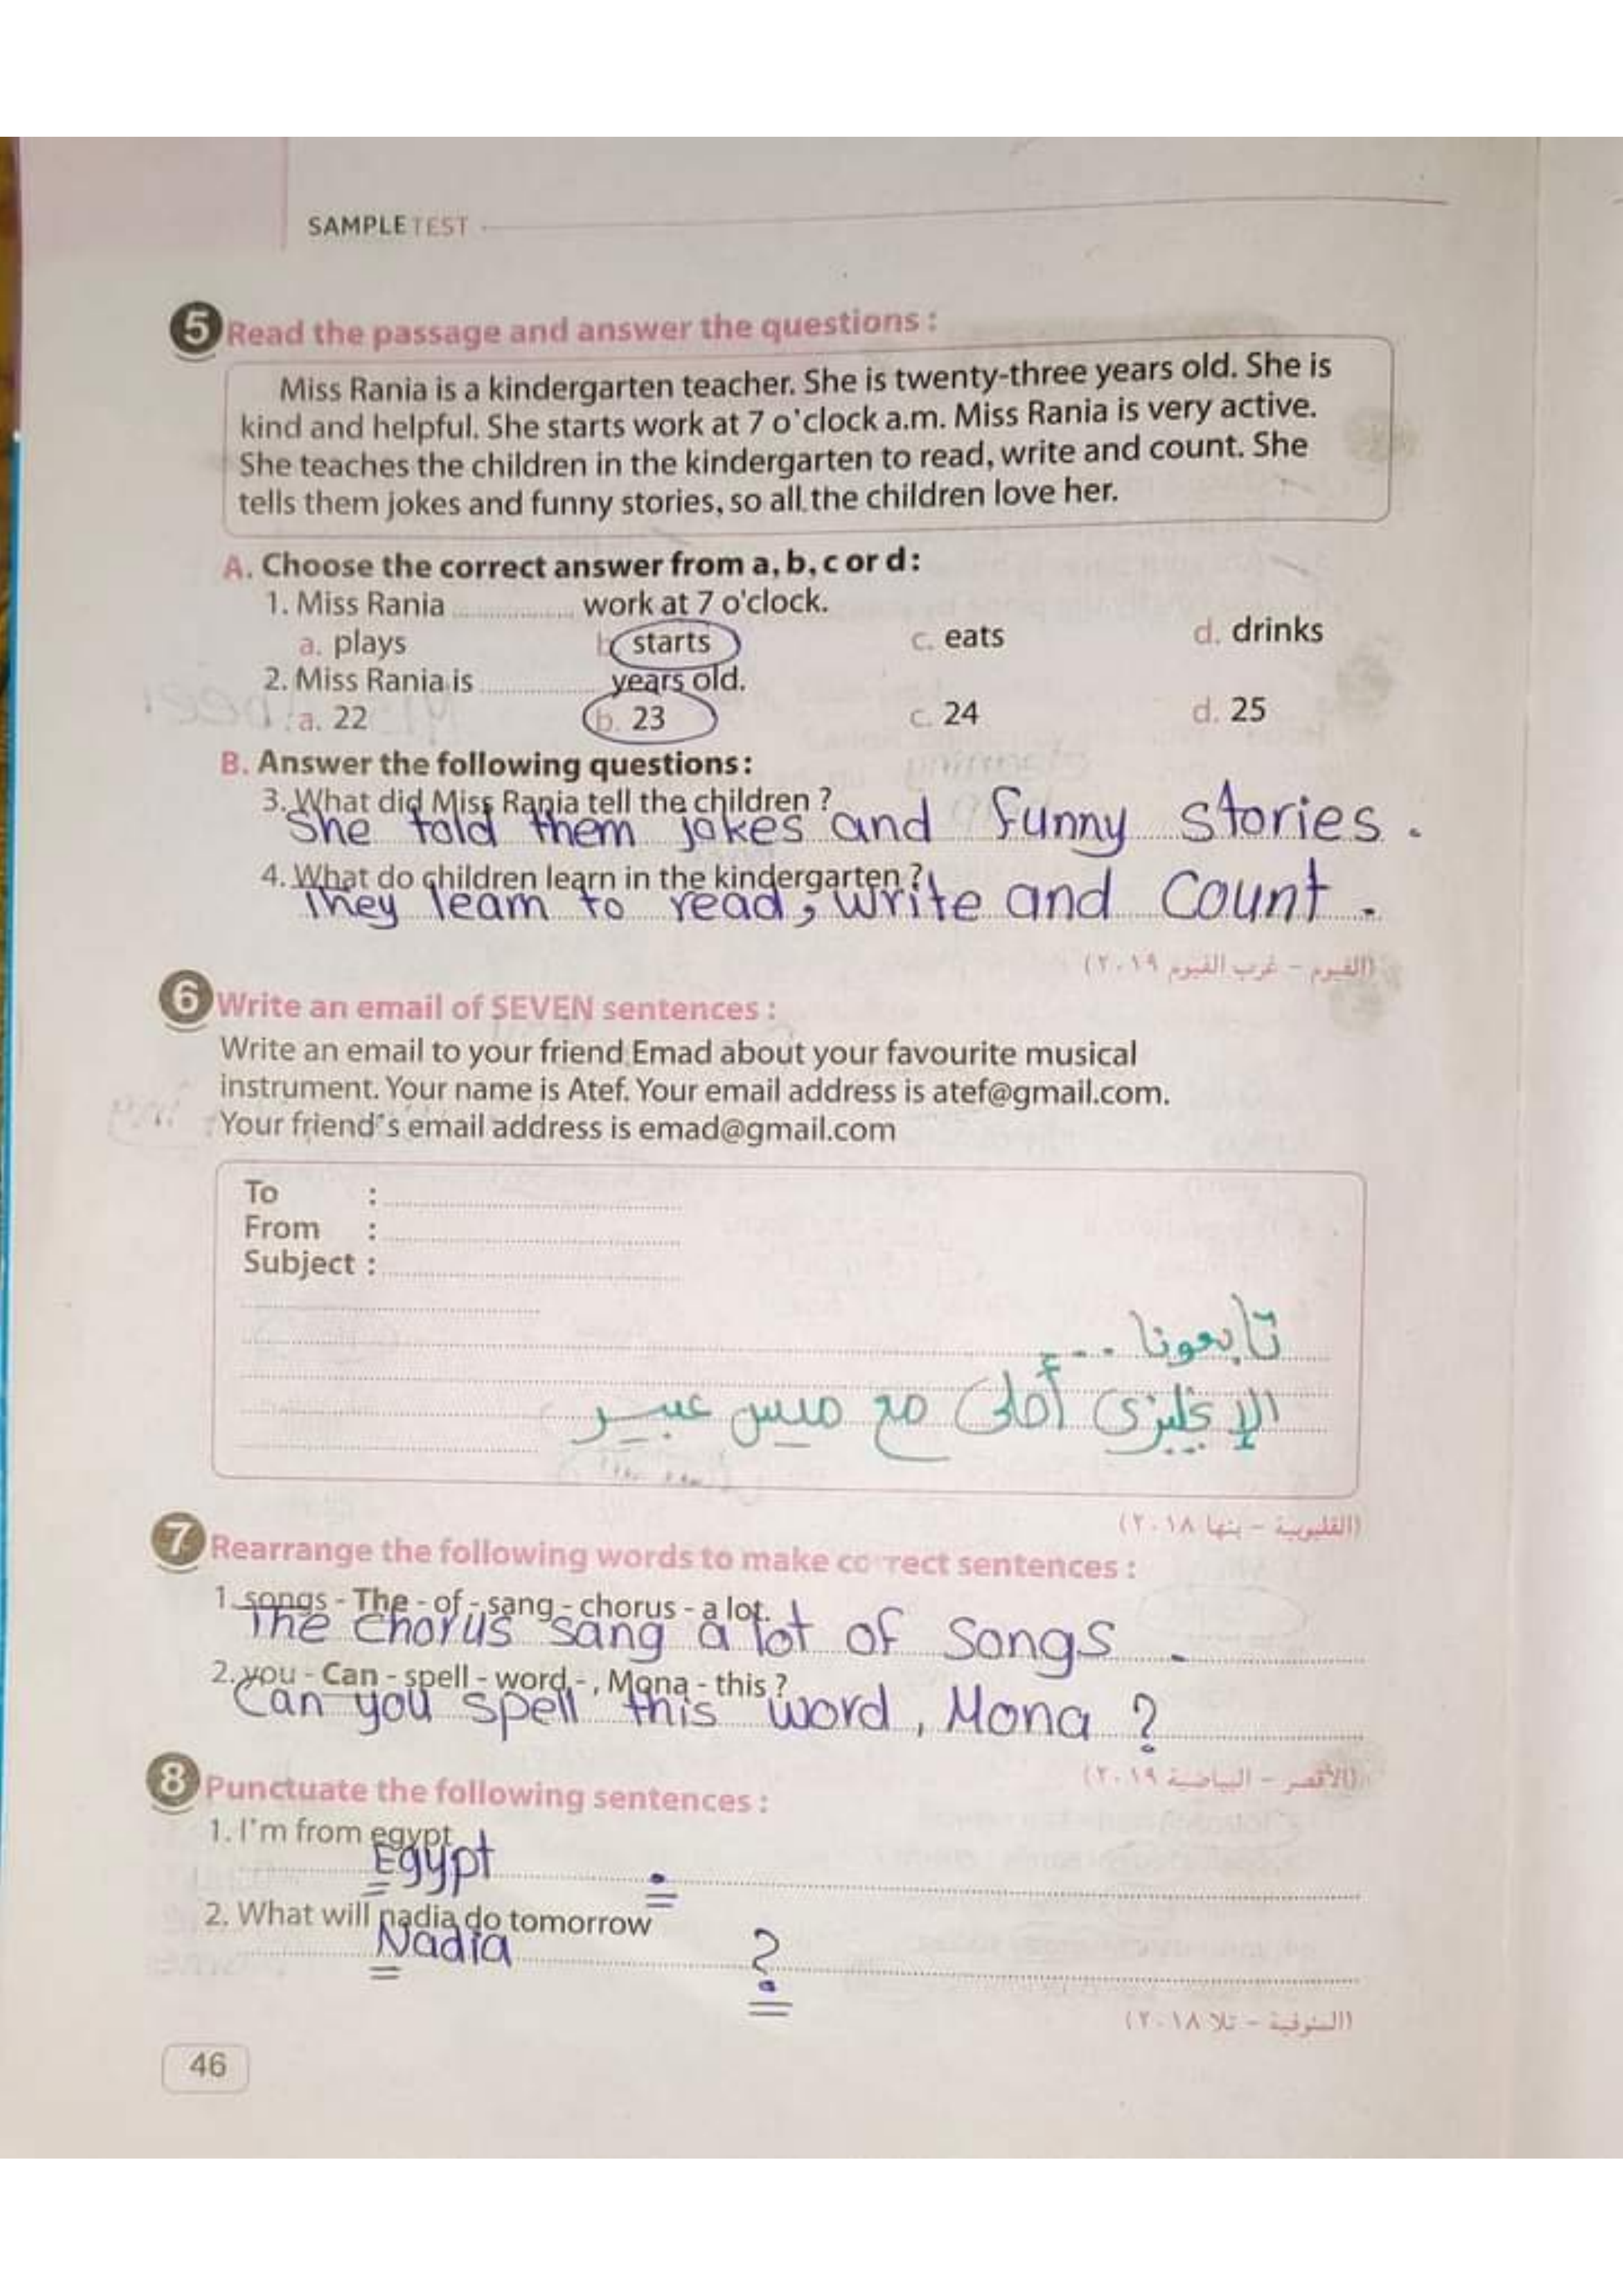 SAMPLE TEST
5 Read the passage and answer the questions :
Miss Rania is a kindergarten teacher. She is twenty-three years old. She is
kind and helpful. She starts work at 7 o'clock a.m. Miss Rania is very active.
She teaches the children in the kindergarten to read, write and count. She
tells them jokes and funny stories, so all the children love her.
A. Choose the correct answer from a, b, c or d :
1. Miss Rania ............... work at 7 o'clock.
a. plays b. starts c. eats d. drinks
2. Miss Rania is ............... years old.
a. 22 b. 23 c. 24 d. 25
B. Answer the following questions :
3. What did Miss Rania tell the children ?
She told them jokes and funny stories.
4. What do children learn in the kindergarten ?
They learn to read, write and count.
(الفيوم - غرب الفيوم ٢٠١٩)
6 Write an email of SEVEN sentences :
Write an email to your friend Emad about your favourite musical
instrument. Your name is Atef. Your email address is atef@gmail.com.
Your friend's email address is emad@gmail.com
To :
From :
Subject :
تابعونا ...
الإنجليزى أحلى مع ميس عبير
(القليوبية - بنها ٢٠١٨)
7 Rearrange the following words to make correct sentences :
1. songs - The - of - sang - chorus - a lot.
The chorus sang a lot of songs.
2. you - Can - spell - word - , Mona - this ?
Can you spell this word, Mona ?
(الأقصر - البياضية ٢٠١٩)
8 Punctuate the following sentences :
1. I'm from egypt
Egypt .
2. What will nadia do tomorrow
Nadia ?
(المنوفية - تلا ٢٠١٨)
46